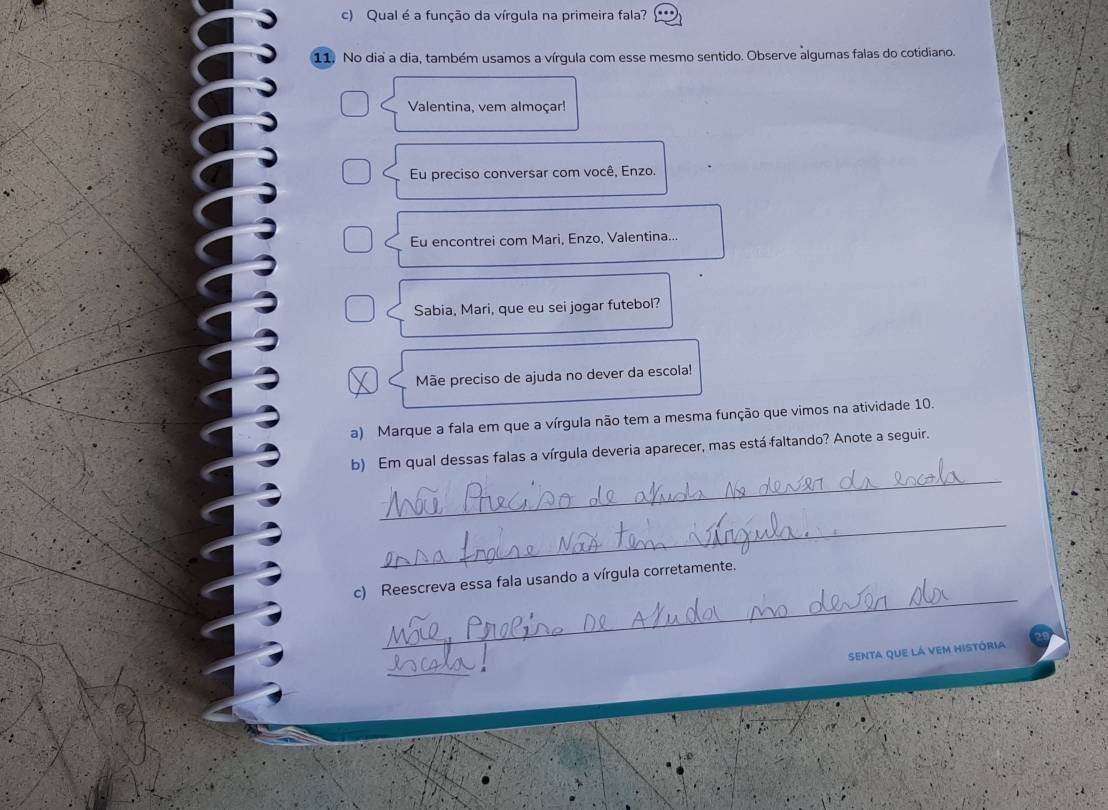 c) Qual é a função da vírgula na primeira fala?
11. No dia a dia, também usamos a vírgula com esse mesmo sentido. Observe algumas falas do cotidiano.
Valentina, vem almoçar!
Eu preciso conversar com você, Enzo.
Eu encontrei com Mari, Enzo, Valentina...
Sabia, Mari, que eu sei jogar futebol?
X Mãe preciso de ajuda no dever da escola!
a) Marque a fala em que a vírgula não tem a mesma função que vimos na atividade 10.
b) Em qual dessas falas a vírgula deveria aparecer, mas está faltando? Anote a seguir.
Mãe Preciso de ajuda No dever da escola
essa frase Não tem vírgula...
c) Reescreva essa fala usando a vírgula corretamente.
Mãe, Preciso De AJuda no dever da
escola!
SENTA QUE LÁ VEM HISTÓRIA 29